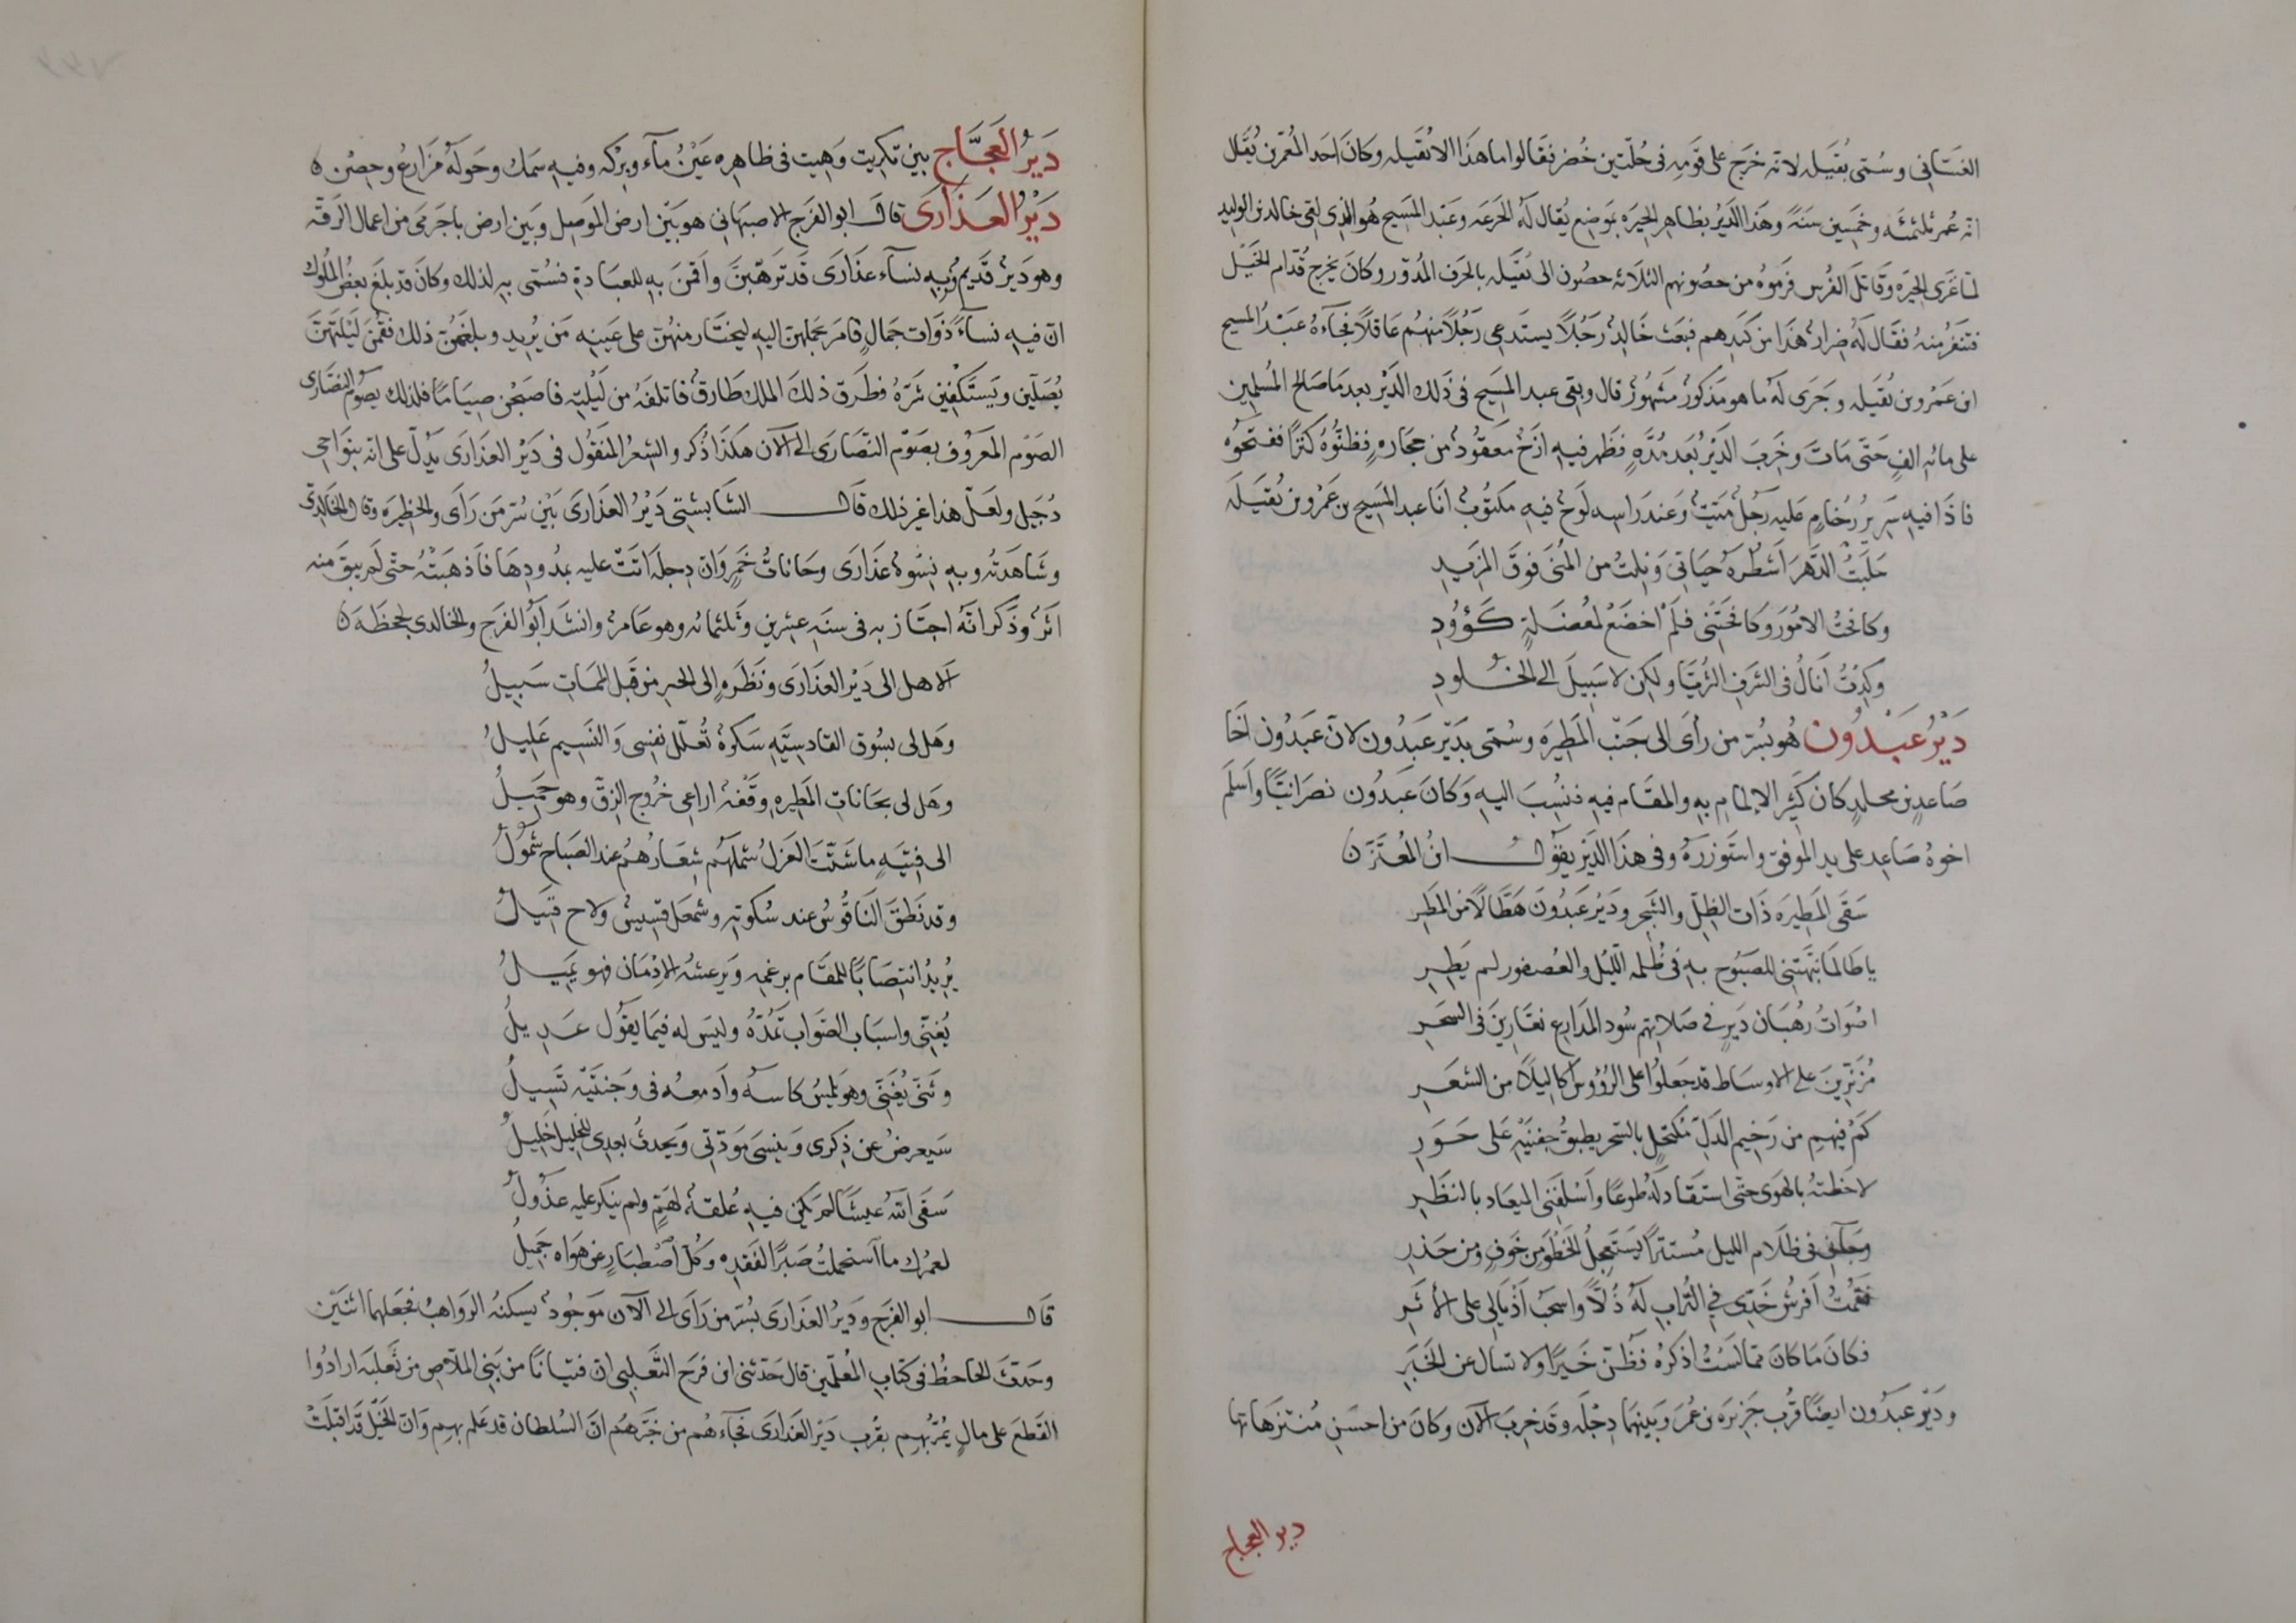 الغسّاني وسُمّي بُقَيلة لانه خرَج على قومِه في حُلّتين خُضر فقالوا ما هَذا الا بُقَيلة وكانَ احَد المُعمّرين يُقال
انه عُمر ثلثمئه وخَمسين سَنةً وهَذا الدَّيرُ بظاهِر الحِيَره بمَوضِع يُقال لَهُ الجرَعَه وعَبد المَسِيح هُو الذي لقي خالد بن الوليد
لمّا غزى الحِيَره وقَاتلَ الفُرس فرَموُه من حصُونهم الثلاثه حصُون ال بُقَيله بالخزف المُدوّر وكانَ يخرج قُدّام الخَيْل
فتنفر منهُ فقَال لَهُ ضِرارٌ هَذا من كَيدِهم فبَعث خَالِدٌ رَجُلًا يستَدعى رَجُلًا منهُم عَاقلًا فجآءهُ عَبْدُ المسيح
ابن عَمرو بن بُقَيله وجَرَى لَهُ ما هو مَذكورٌ مَشهُورٌ قال وبقي عبد المسَيح في ذَلك الدَّيْر بعد مَا صَالح المُسلمين
على مائهِ الفٍ حَتّى مَات وخَربَ الدَيْرُ بعَد مُدّهٍ فظَهر فيهِ ازَجٌ مَعقوُدٌ من حجَارهٍ فظَنّوُهُ كنزًا ففتَحوُه
فاذَا فيهِ سَرِيرُ رُخَامٍ عليه رَجُلٌ مَيّتٌ وعَند راسه لَوْحٌ فيهِ مكتوُبٌ انَا عبد المسَيح بن عَمرو بن بُقَيلَه
حَلَبتُ الدَّهَر اَشطُرَهُ حيَاتي وَنِلتُ من المُنَى فوَقَ المزَيدِ
وكافحتُ الامُورَ وكَافحَتْني فلَم اخضَع لمُعضَلةٍ كَؤُودِ
وكِدْتُ انَالُ في الشرَفِ الثُرَيّا ولكِن لا سَبِيلَ الى الخُلودِ
دَيْرُ عَبْدُون هُو بسُرّ من رأى الى جَنْب المَطيرَه وسُمّى بدَيْر عَبدُون لانّ عَبدُون اخَا
صَاعدِ بن مخلدٍ كانَ كَثيَر الإلمامِ بهِ والمقَام فيهِ فنُسِبَ اليهِ وَكانَ عَبدُون نصَرانيّاً واَسلَم
اخوهُ صَاعِد على يد الموفق واستَوزرَهُ وفي هذَا الدَيْر يقوُل ابنُ المُعتَز
سَقَى المَطِيرَه ذَات الظِلّ والشَجرِ ودَيْر عَبدُونَ هَطَّالًا من المَطرِ
يا طَالمَا نبَّهَتني للصَبُوح بهِ في ظُلمه اللَّيْل والعُصفور لم يَطِرِ
اصْوَاتُ رهُبَان دَيرٍ في صَلاتِهم سُود المدَارِع نعَّارِينَ في السّحَرِ
مُزنَّرينَ على الاوسَاط قد جعَلوُا على الرُؤوس اكَاليلًا من الشعَرِ
كَمْ فيهِم من رَخيم الدَلّ مُكتحَلٍ بالسّحر يطبقُ جَفنَيْهِ عَلى حَوَرِ
لاحَظتهُ بالهَوى حتّى استقَاد لَهُ طوعًا وأسْلفَني الميعَاد بالنظَرِ
وجَآءني في ظَلام الليل مُستترًا يَسْتَعجِلُ الخَطْوَ من خَوفٍ ومن حَذرِ
فقمْتُ اَفرشُ خَدّي في التُرابِ لَهُ ذُلًا واسحَبُ اَذْيَالي على الأثرِ
فكانَ مَا كانَ ممّا لَستُ اذكرُهُ فظُنّ خَيرًا ولا تسال عن الخَبَرِ
ودَيْر عَبدُون ايضًا قُرب جَزيرَه بن عُمَر وَبينهَما دِجْلَه وقَد خربَ الآن وكانَ من احسَنِ مُنتزهَاتها
دير العجاج
دَيرُ العَجَّاج بين تكريت وَهِيت في ظاهِره عَيْنُ مآء وبِركه وفيهِ سمَك وحَولَهُ مَزَارعُ وحصْن ه
دَيْرُ العَذَارَى قالَ ابو الفَرج الاصبهَاني هو بَيْن ارض المَوصِل وبَين ارض باجَرمى من اعمال الرَّقه
وهو دَيْرٌ قَديمٌ وبهِ نسآء عذَارى قَد ترَهّبنَ واَقمنَ بهِ للعبَادةِ فسُمّى بهِ لذلك وكانَ قد بلَغ بعضُ المُلُوك
انّ فيهِ نسآءً ذوَات جَمالٍ فامَر بحَملهنّ اليهِ ليختَار منهُنّ على عَينهِ مَن يُرِيد وبلغَهُنّ ذلك فقُمْنَ لَيْلتَهُنّ
يُصَلّين ويَستَكْفِين شَرّهُ فطَرق ذلكَ الملك طَارقٌ فاتلفَهُ من لَيْلتِهِ فاصبَحْن صِيَامًا فلذلك يصَوُم النصَارى
الصَوْم المعَرُوف بصَوْم النصَارَى الى الآن هكَذَا ذُكر والشِعرُ المنقوُل في دَيْر العذَارَى يَدُلّ على انّه بنَوَاحى
دُجَيل ولعَلّ هذا غير ذلك قَال الشَابشتي دَيْرُ العذَارَى بَيْن سُرّ مَن رَأَى والحظيرَه وقال الخَالِدِي
وشَاهَدتُه وبهِ نِسْوهٌ عذَارَى وحَاناتُ خَمرٍ وانّ دِجلَه اتَت عليه بمُدُودِهَا فأذهَبَتْهُ حتّى لَم يبقَ منه
اثَرٌ وذَكَر انَّهُ اجتَاز به في سنَهِ عِشرين وثَلثمائه وهو عَامرٌ وانشَد ابُو الفَرج والخالدي لجحَظَه
الا هل الى دَيْر العذَارَى ونظَرهٍ الى الخيرِ من قَبل المَمَاتِ سَبِيلُ
وهَل لى بسُوق القادسيّهِ سَكرهٌ تُعلّل نفسِى وَالنَسِيم عَلِيلُ
وهَل لى بحَاناتِ المَطِيرهِ وقَفهٌ اراعِى خُرُوج الزِقّ وهو حَمِيلُ
الى فِتيَهٍ ما شَتّتَ العَزلُ شملهَم شِعَارُهُم عند الصَباح شَمُولُ
وقد نَطقَ النَاقُوسُ عند سُكوتهِ وشمعَل قسّيسٌ ولاح فتيلُ
يُرِيدُ انتصَابًا للمقَام برغمهِ ويَرعشُه الادْمَان فهو يَمِيلُ
يُغنّى واسبَاب الصَوَاب تَمُدُّهُ وليَس له فيمَا يقوُل عَدِيلُ
وثَنى يُغَنِي وهو يَلمِسُ كاسهُ وأدمعُه في وَجنتَيْه تَسِيلُ
سَيعرضُ عن ذِكرى وَينسَى مَودّتِي وَيحدثُ بعدى للخلِيل خَلِيلُ
سَقَى اللهُ عيشًا لَم يكُن فيهِ عُلقةٌ لهَمٍّ ولم ينكر عليهِ عذُولُ
لعمرُك ما استحملتُ صَبرًا لفَقدِه وكُلّ اصْطبَارٍ عن هوَاه جَمِيلُ
قَال ابو الفرَج ودَيرُ العذَارَى بُسرّ من رَأى الى الآن مَوجُودٌ يسكنُه الرَوَاهبُ فجَعَلهما اثنَيْن
وحَدّث الجَاحظُ في كتَابِ المُعلّمين قال حَدّثني ابن فرَج الثَعلبى ان فتيَانًا من بَني الملّاص من ثَعلبَه ارَادُوا
القَطعَ على مالٍ يُمرُّ بِهِم بقُرب دَيْر العَذارَى فجَآءهُم من خَبّرهُم انّ السُلطان قد علم بِهِم وَانّ الخَيْل قَد اقبَلَت